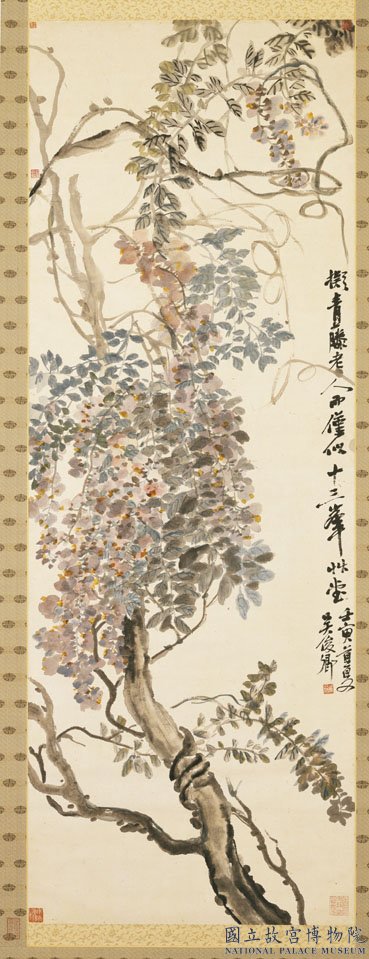 擬青藤老人而僅似十三峯艸堂
壬寅首夏
吳俊卿
國立故宮博物院
NATIONAL PALACE MUSEUM